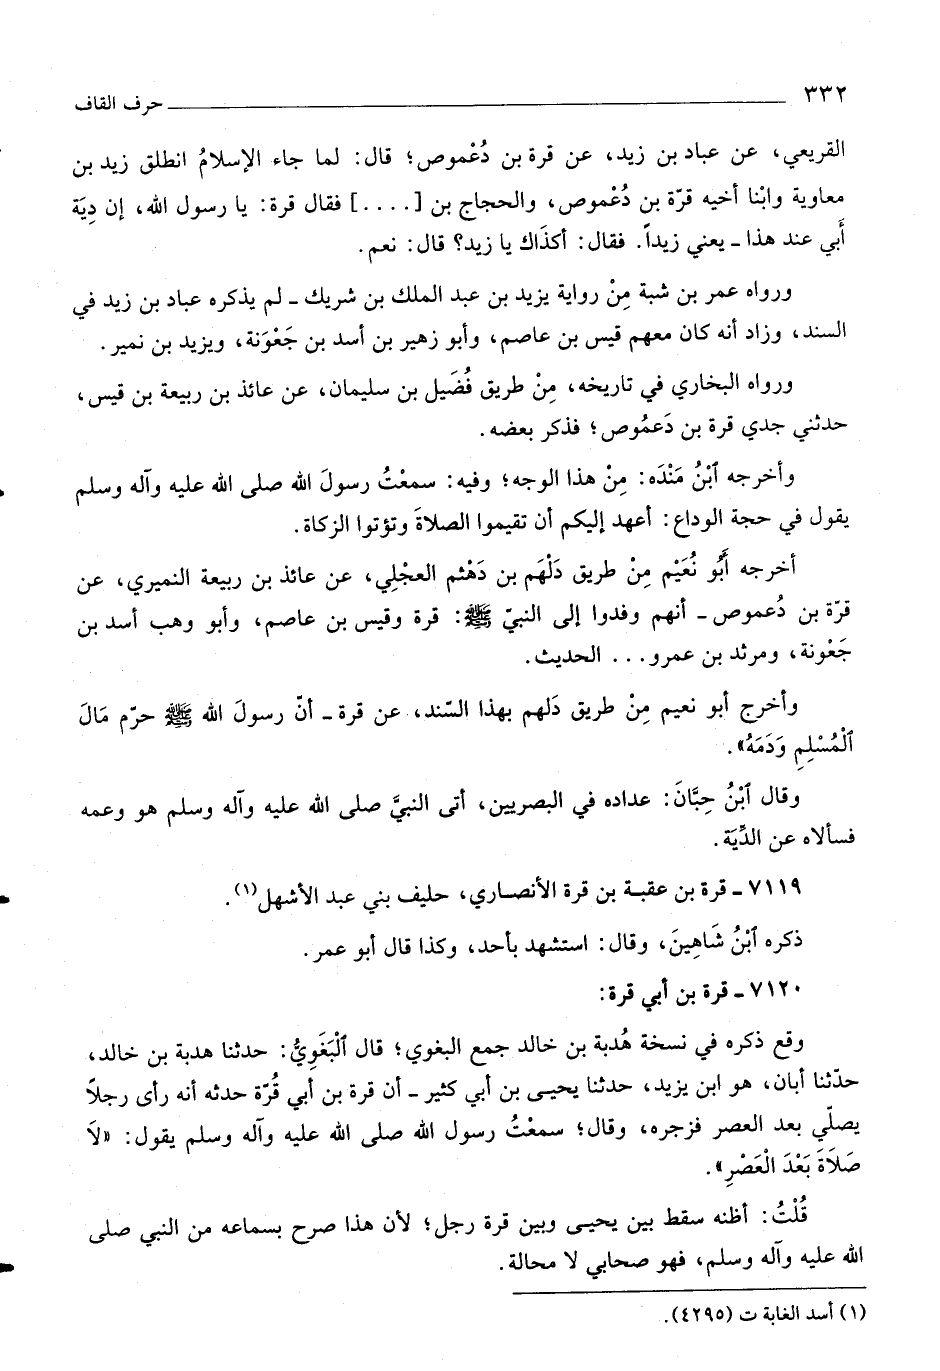 ٣٣٢ حرف القاف
القريعي، عن عباد بن زيد، عن قرة بن دُعْموص؛ قال: لما جاء الإسلامُ انطلق زيد بن
معاوية وابْنا أخيه قرّة بن دُعْموص، والحجاج بن [....] فقال قرة: يا رسول الله، إن دِيَة
أَبي عند هذا ـ يعني زيداً. فقال: أكذَاك يا زيد؟ قال: نعم.
ورواه عمر بن شبة مِنْ رواية يزيد بن عبد الملك بن شريك ـ لم يذكره عباد بن زيد في
السند، وزاد أنه كان معهم قيس بن عاصم، وأبو زهير بن أسد بن جَعْوَنة، ويزيد بن نمير.
ورواه البخاري في تاريخه، مِنْ طريق فُضَيل بن سليمان، عن عائذ بن ربيعة بن قيس،
حدثني جدي قرة بن دَعمُوص؛ فذكر بعضه.
وأخرجه ٱبْنُ مَنْدَه: مِنْ هذا الوجه؛ وفيه: سمعْتُ رسولَ الله صلى الله عليه وآله وسلم
يقول في حجة الوداع: أعهد إليكم أن تقيموا الصلاةَ وتؤتوا الزكاة.
أخرجه أَبُو نُعَيْم مِنْ طريق دَلْهَم بن دَهْثم العجْلِي، عن عائذ بن ربيعة النميري، عن
قرّة بن دُعموص ـ أنهم وفدوا إلى النبيّ ﷺ: قرة وقيس بن عاصم، وأبو وهب أسد بن
جَعْونة، ومرثد بن عمرو... الحديث.
وأخرج أبو نعيم مِنْ طريق دَلهم بهذا السّند، عن قرة ـ أنّ رسولَ الله ﷺ حرّم مَالَ
ٱلْمُسْلِمِ وَدَمَهُ».
وقال ٱبْنُ حِبَّانَ: عداده في البصريين، أتى النبيَّ صلى الله عليه وآله وسلم هو وعمه
فسألاه عن الدِّيَة.
٧١١٩ ـ قرة بن عقبة بن قرة الأنصاري، حليف بني عبد الأشهل(١).
ذكره ٱبْنُ شَاهِينَ، وقال: استشهد بأحد، وكذا قال أبو عمر.
٧١٢٠ ـ قرة بن أبي قرة:
وقع ذكره في نسخة هُدبة بن خالد جمع البغوي؛ قال ٱلْبَغَوِيُّ: حدثنا هدبة بن خالد،
حدّثنا أبان، هو ابن يزيد، حدثنا يحيى بن أبي كثير ـ أن قرة بن أبي قُرّة حدثه أنه رأى رجلاً
يصلّي بعد العصر فزجره، وقال؛ سمعْتُ رسول الله صلى الله عليه وآله وسلم يقول: «لاَ
صَلَاةَ بَعْدَ الْعَصْرِ».
قُلْتُ: أظنه سقط بين يحيى وبين قرة رجل؛ لأن هذا صرح بسماعه من النبي صلى
الله عليه وآله وسلم، فهو صحابي لا محالة.
(١) أسد الغابة ت (٤٢٩٥).